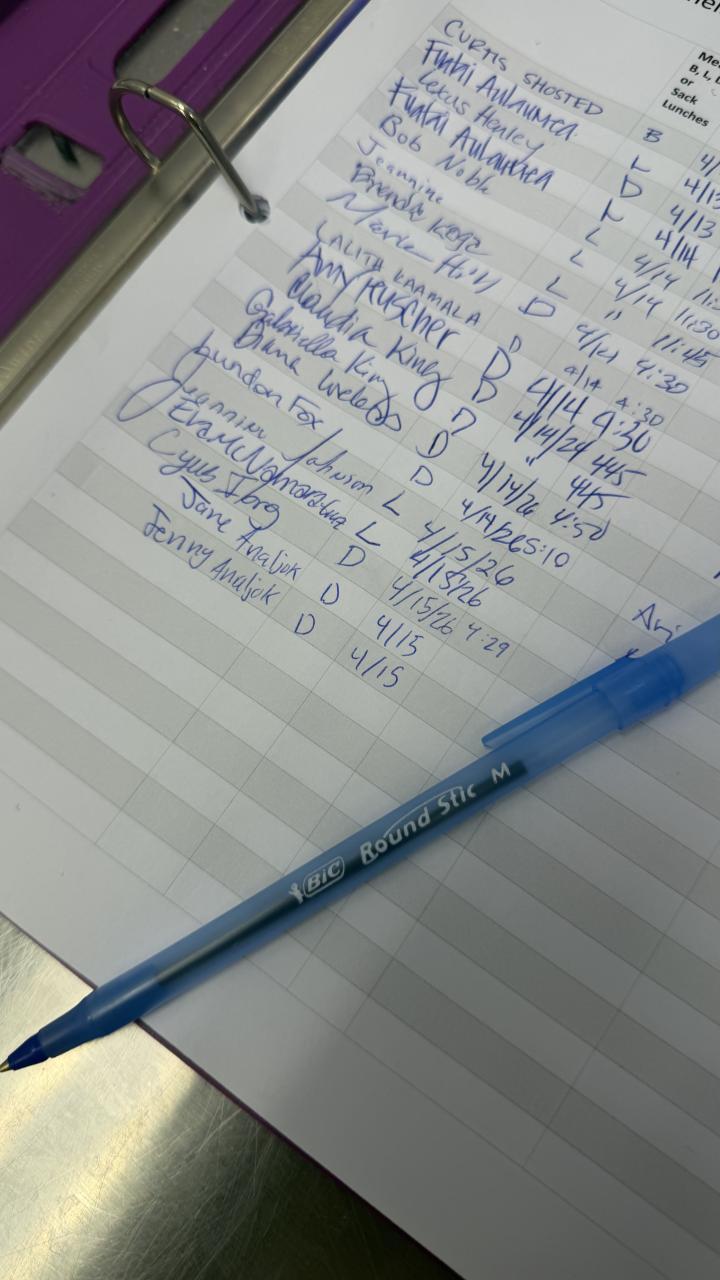 Me
B, L, D
or
Sack
Lunches
CURTIS SHOSTED B 4/
Funbi Aulaumea L 4/13
Lexus Henley D 4/13
Funbi Aulaumea L 4/14
Bob Noble L 4/14 11:
Jeannine L 4/14 11:30
Brenda L " 11:45
Marla Hill D 4/14 4:30
LALITH KAAMALA D 4/14 4:30
Amy Ruscher D 4/14 4:30
Claudia King D 4/14/26 445
Gabriella King D " 445
Diana D 4/14/26 4:50
Fox D 4/14/26 5:10
Jeannine Johnson L 4/15/26
L 4/15/26
Cyub Ibrg D 4/15/26 4:29
Jane Analjok D 4/15
Jenny Analjok D 4/15
Ari
BIC Round Stic M